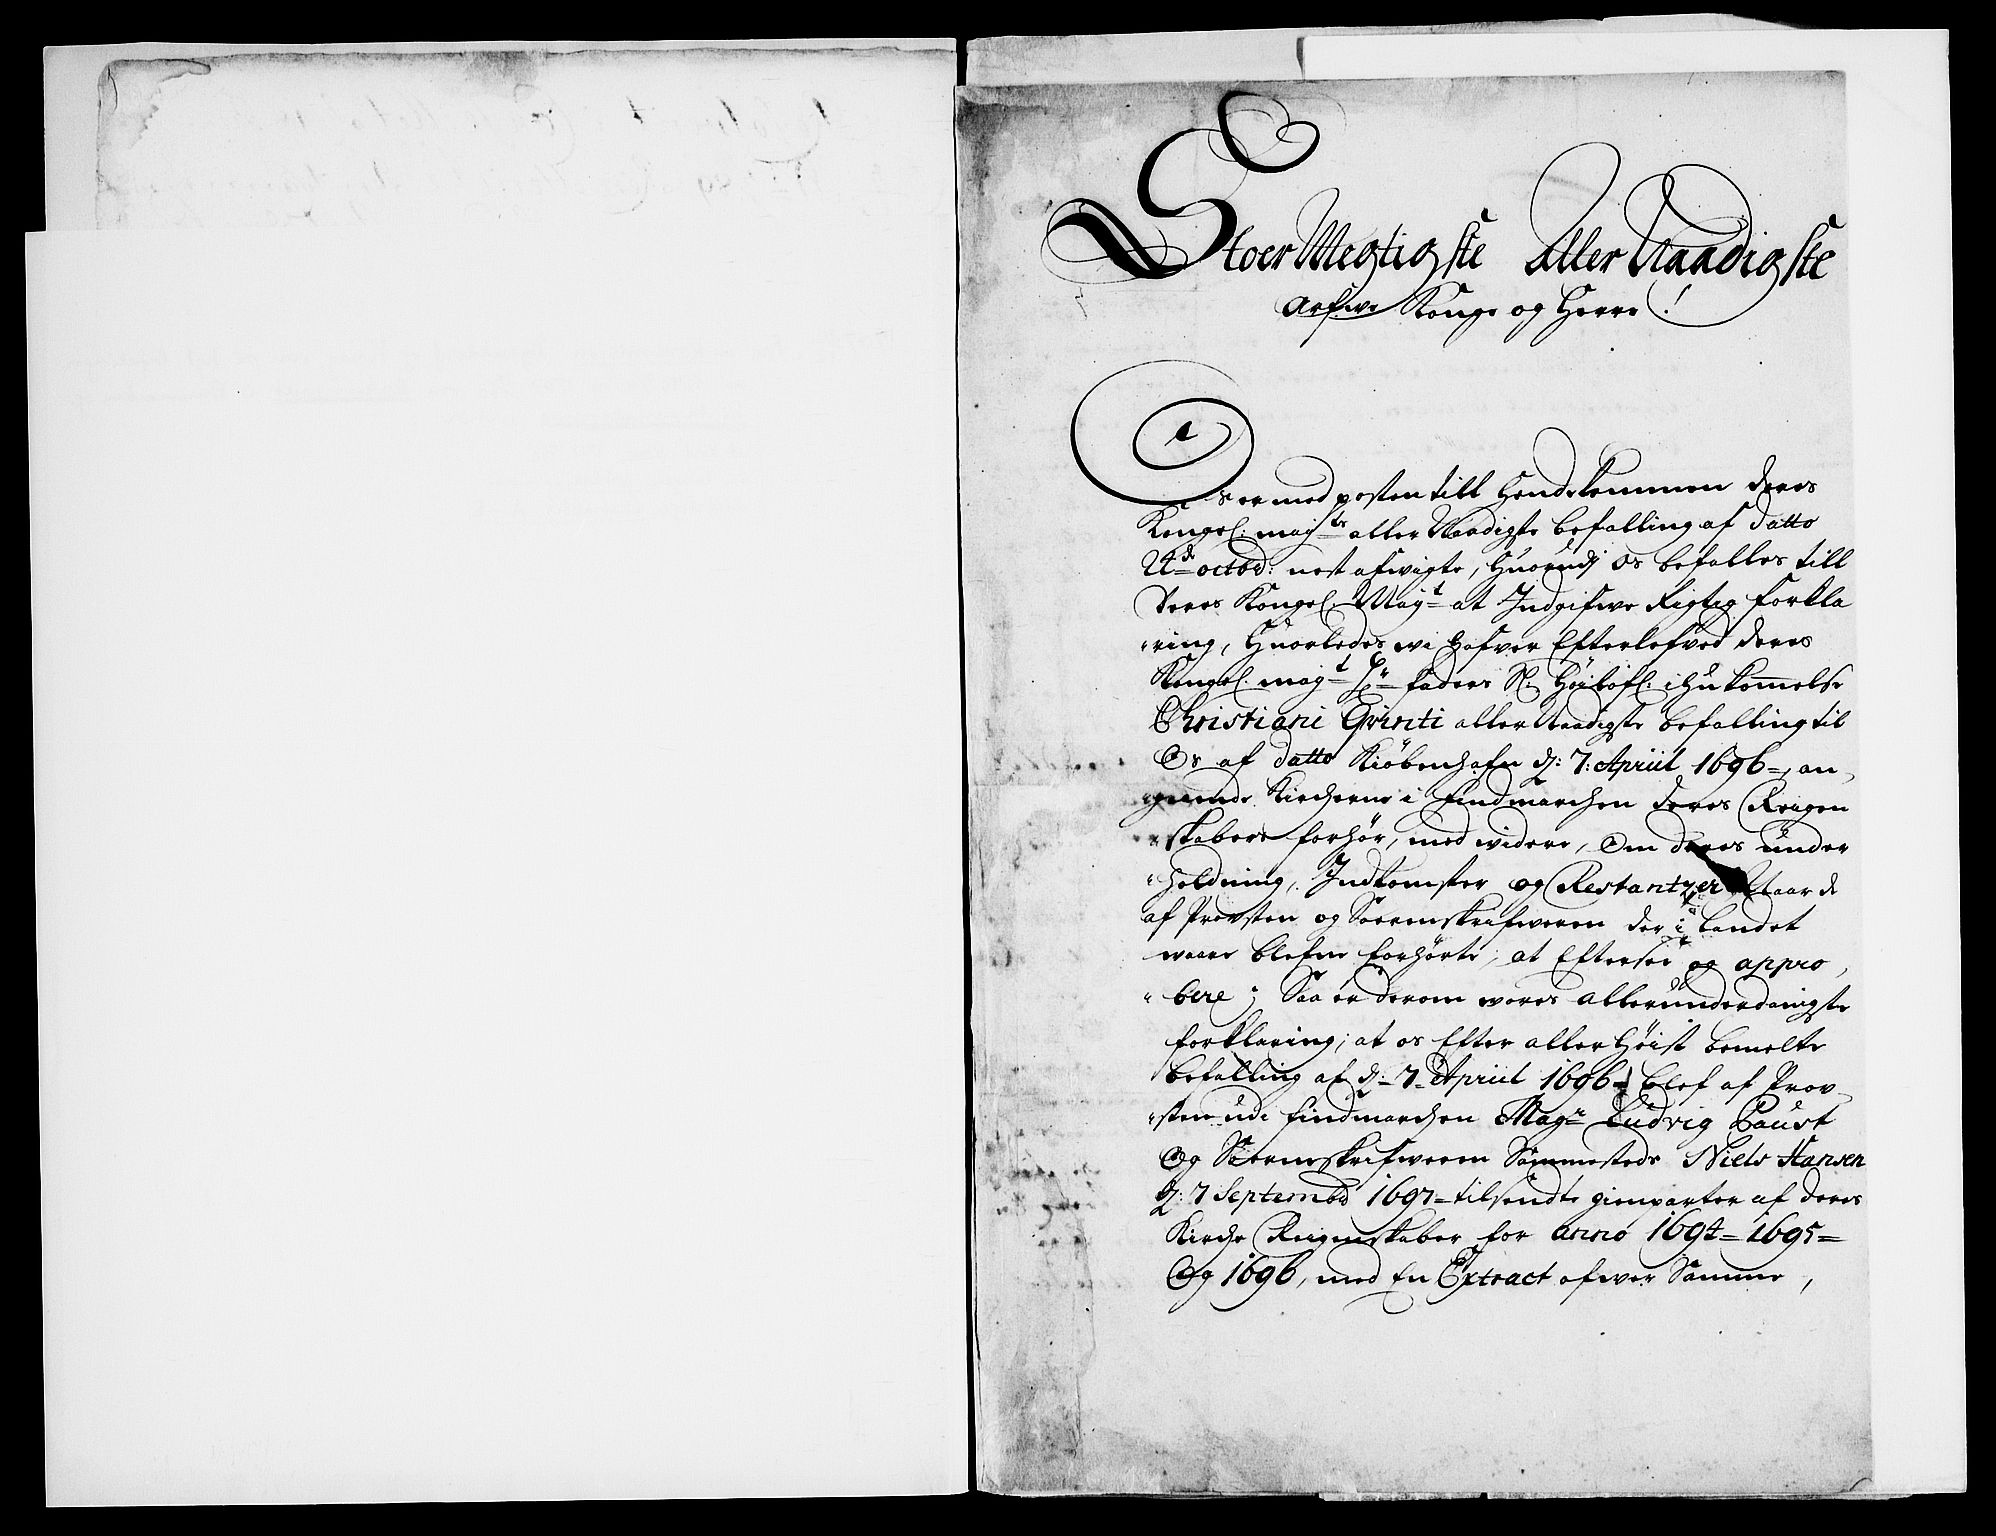 StoerMegtigste Aller Naadigste
Arfwe Konge og Herre!
Os er med posten till Hende kommen Deres
Kongel: Mayts aller Naadigste befalling af Datto
24de octob: nest afvigte, Huorudj Os befalles till
Deres Kongel. Mayt at Indgifwe Rigtig forkla
„ring, Huorledes wi hafver Efterlefved Deres
Kongel. Mayt Hr faders Sl: Höilofl: ihukommelse
Christiani Qvinti aller Naadigste befalling til
Os af Datto Kiöbenhafn d: 7: Apriil 1696, an
gaaende Kircherne i Findmarchen Deres Reigen
„skabers forhör, med widere, Om Deres under
„holdning, Indkomster og Restantzer Naar de
af Provsten og Sorenskrifweren der i Landet
waare blefne forhörte, at Eftersee og appro
„bere; Saa er derom wores allerunderdanigste
forklaring, at os Efter aller Höist bemelte
befalling af d: 7 Apriil 1696 blef af Prov
„sten udi Findmarchen Magr Ludvig Paust
Og Sorenskrifweren Sammesteds Niels Hansen
d: 7 Septembr 1697 tilsendte gienparter af deres
Kirche Reigenskaber for anno 1694 = 1695 =
Og 1696, med En Extract ofwer Samme,